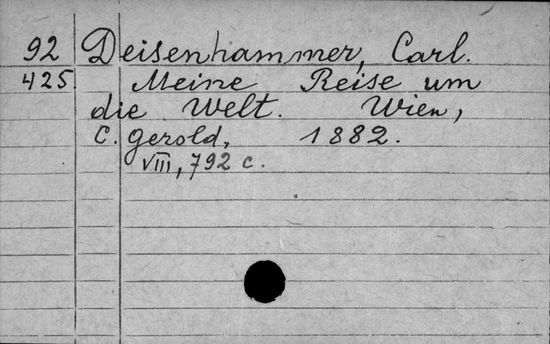 92 Deisenhammer, Carl.
425 Meine Reise um
die Welt. Wien,
C. Gerold, 1882.
VIII, 792 c.